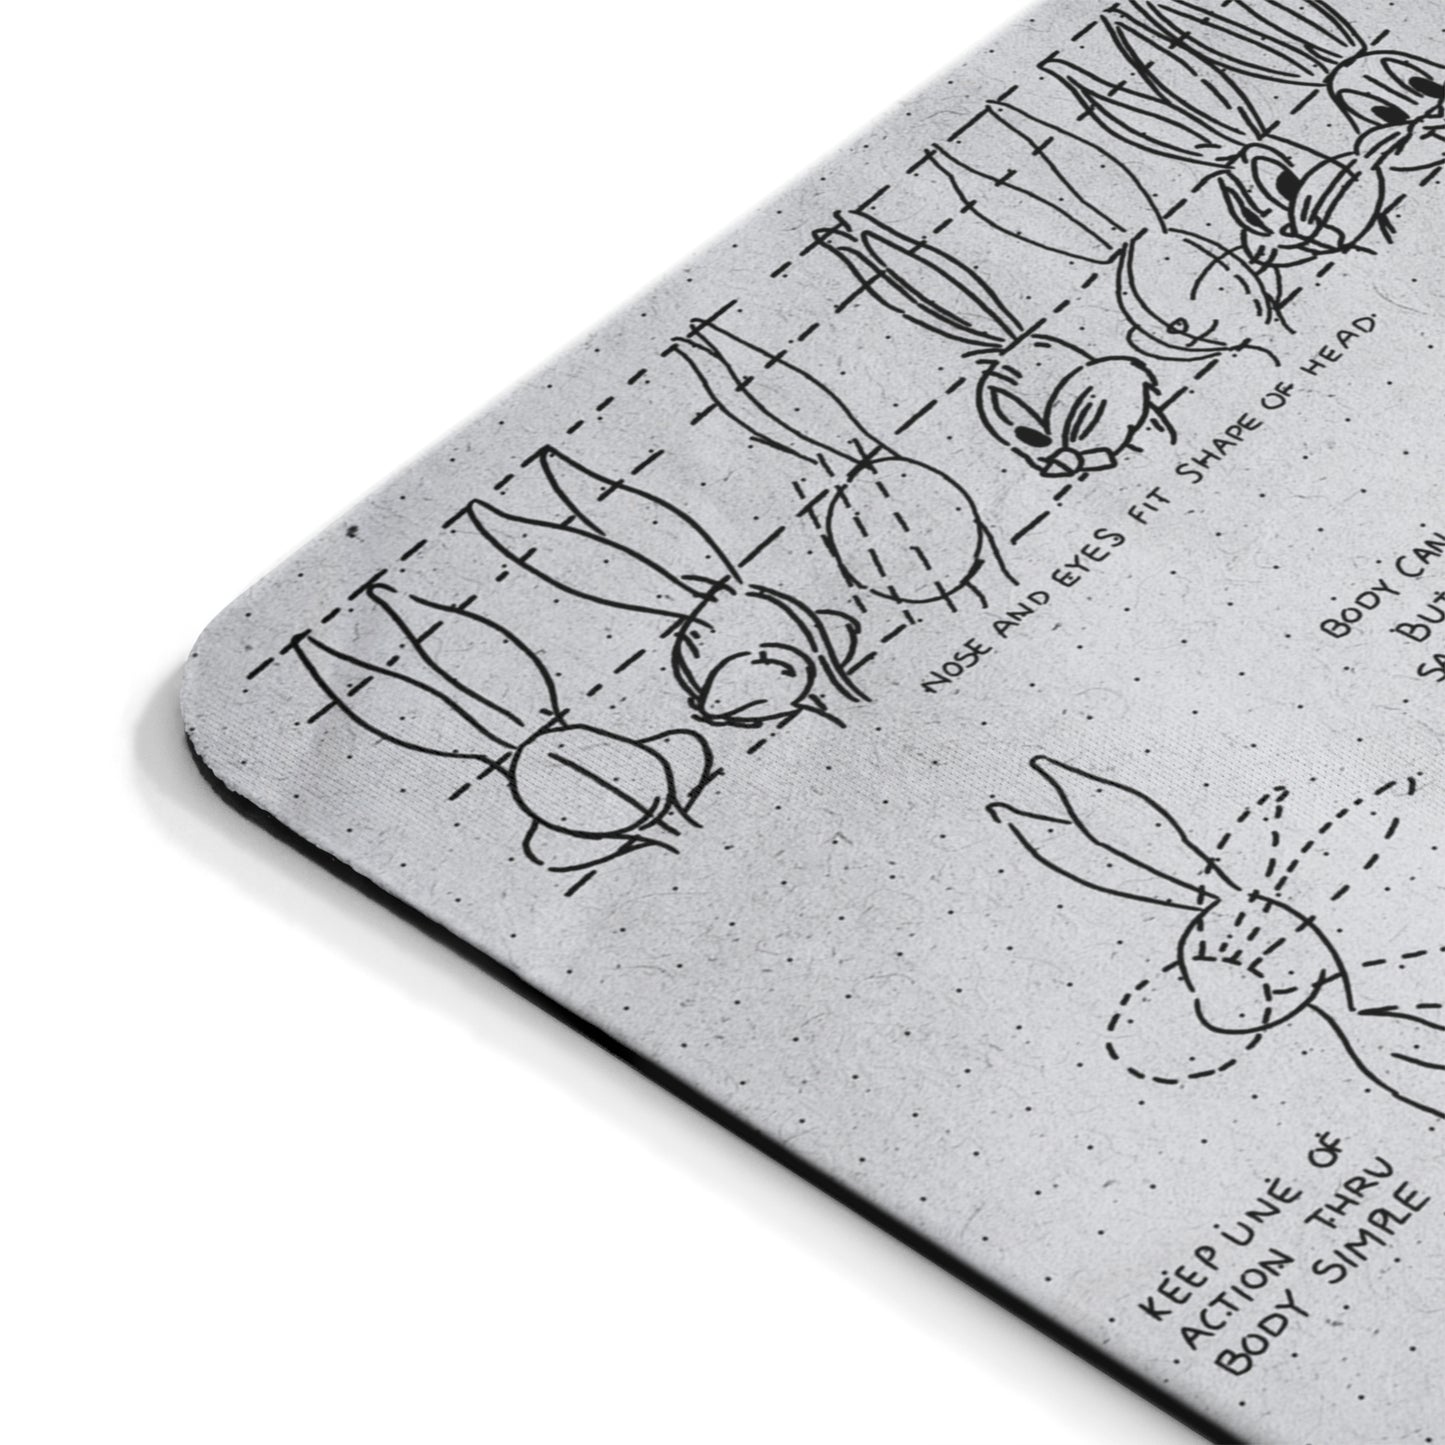 NOSE AND EYES FIT SHAPE OF HEAD
BODY CAN
KEEP LINE OF
ACTION THRU
BODY SIMPLE